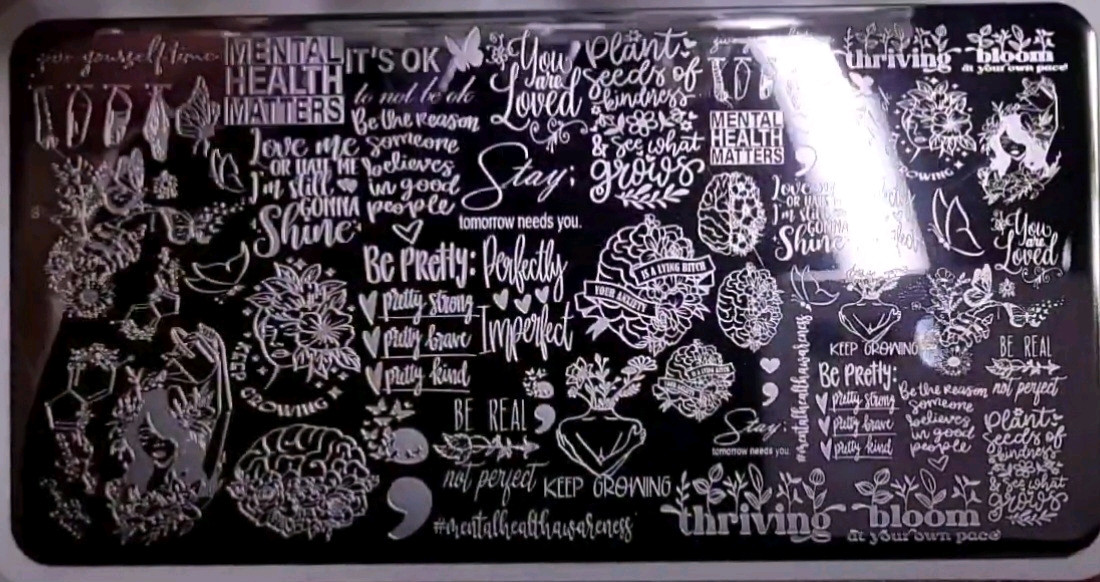 give yourself time
MENTAL
HEALTH
MATTERS
IT'S OK
to not be ok
You
are
Loved
Plant
seeds of
kindness
& see what
grows
Be the reason
someone
believes
in good
people
Love me
OR HATE ME
I'm still
GONNA
Shine
Stay;
tomorrow needs you.
Be Pretty:
pretty strong
pretty brave
pretty kind
Perfectly
Imperfect
YOUR ANXIETY
IS A LYING BITCH
KEEP GROWING
BE REAL
not perfect
KEEP GROWING
#mentalhealthawareness
thriving
bloom
at your own pace
thriving
bloom
at your own pace
MENTAL
HEALTH
MATTERS
GROWING
Love
OR HATE
I'm still
GONNA
Shine
You
are
Loved
KEEP GROWING
#mentalhealthawareness
BE REAL
not perfect
Be Pretty:
pretty strong
pretty brave
pretty kind
Be the reason
someone
believes
in good
people
Stay;
tomorrow needs you.
Plant
seeds of
kindness
& see what
grows